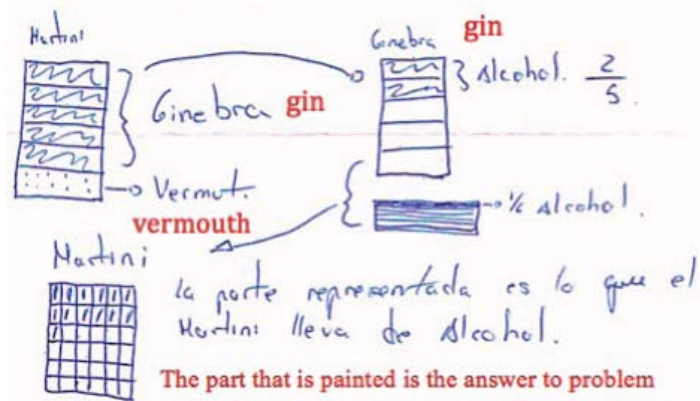 Martini
Ginebra gin
Alcohol. 2/5.
Ginebra gin
Vermut.
vermouth
1/6 Alcohol.
Martini
la parte representada es lo que el
Martini lleva de Alcohol.
The part that is painted is the answer to problem